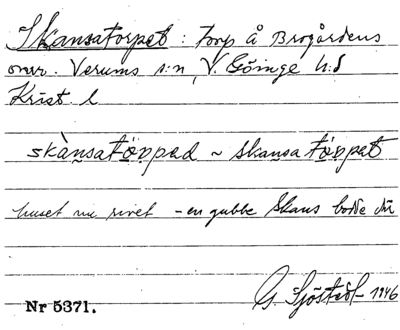 Skansatorpet : torp å Brogårdens
område. Verums s:n, V. Göinge h:d
Krist. l
skànsatöppad ~ skansa töppet
huset nu rivet – en gubbe Skans bodde där
G. Sjöstedt – 1946
Nr 5371.